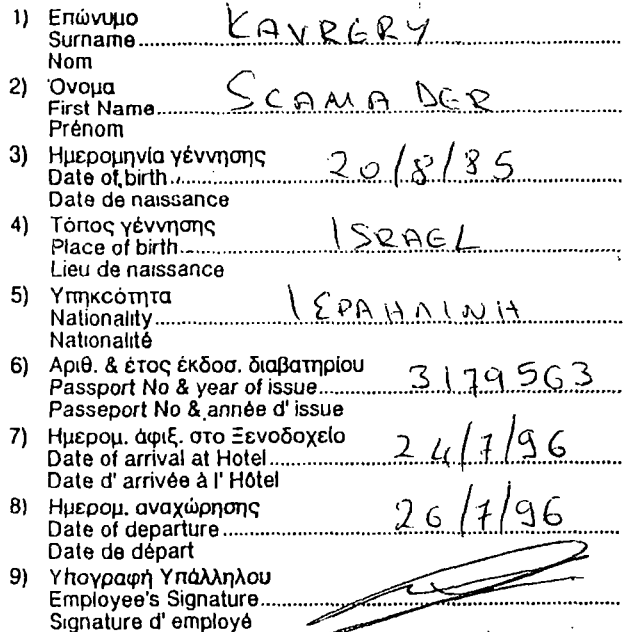 1) Επώνυμο
Surname KAVRGRY
Nom
2) Όνομα
First Name SCAMADER
Prénom
3) Ημερομηνία γέννησης
Date of birth 20/8/85
Date de naissance
4) Τόπος γέννησης
Place of birth ISRAEL
Lieu de naissance
5) Υπηκοότητα
Nationality ΙΣΡΑΗΛΙΝΗ
Nationalité
6) Αριθ. & έτος έκδοσ. διαβατηρίου
Passport No & year of issue 3179563
Passeport No & année d' issue
7) Ημερομ. άφιξ. στο Ξενοδοχείο
Date of arrival at Hotel 24/7/96
Date d' arrivée à l' Hôtel
8) Ημερομ. αναχώρησης
Date of departure 26/7/96
Date de départ
9) Υπογραφή Υπάλληλου
Employee's Signature
Signature d' employé